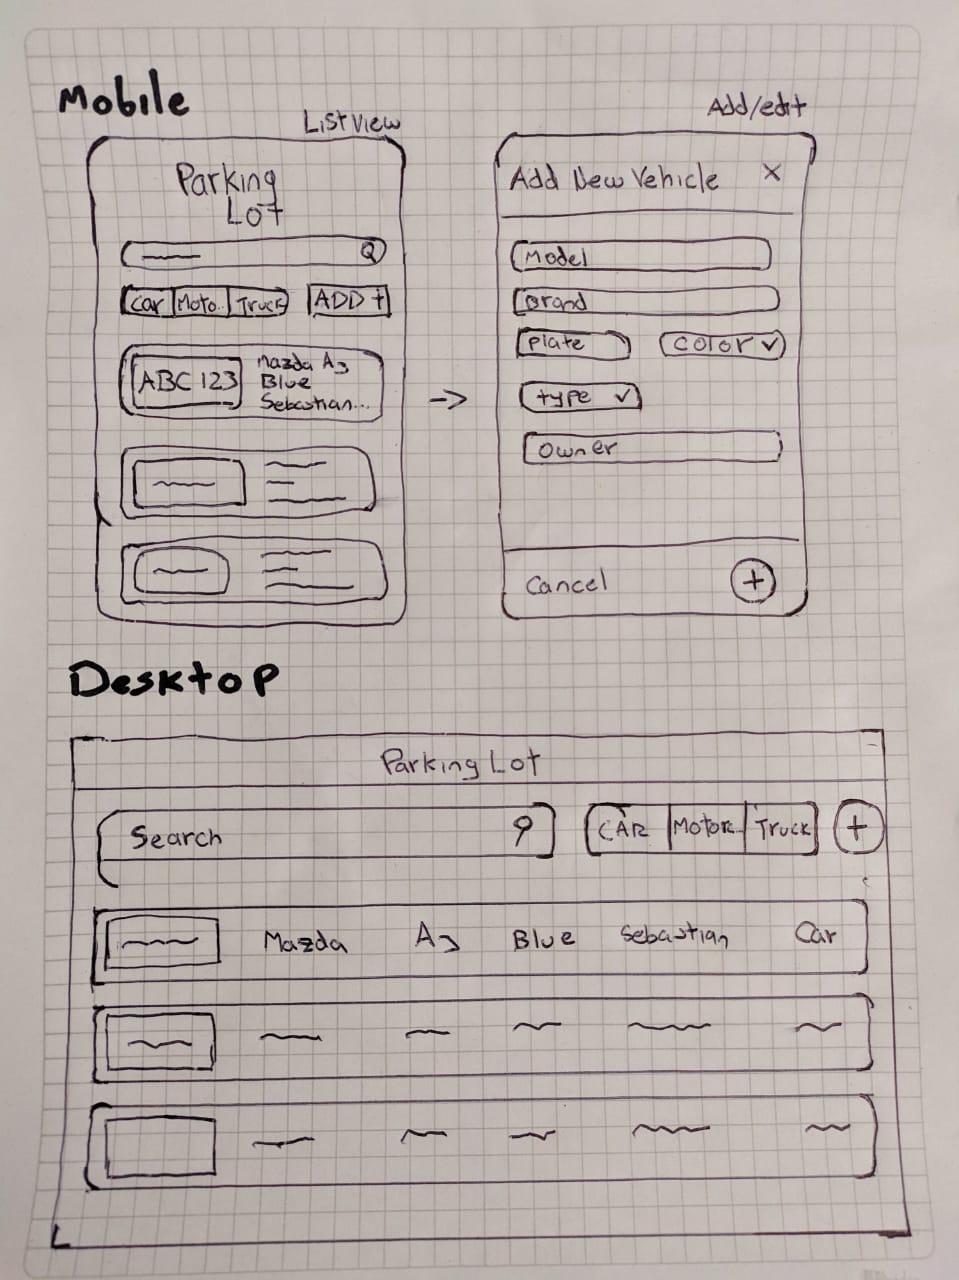 Mobile
List view
Parking
Lot
Car Moto.. Truck ADD +
ABC 123
Mazda A3
Blue
Sebastian...
Add/edit
Add New Vehicle X
Model
Brand
Plate color
type
Owner
Cancel +
Desktop
Parking Lot
Search
CAR Motor.. Truck +
Mazda A3 Blue Sebastian Car